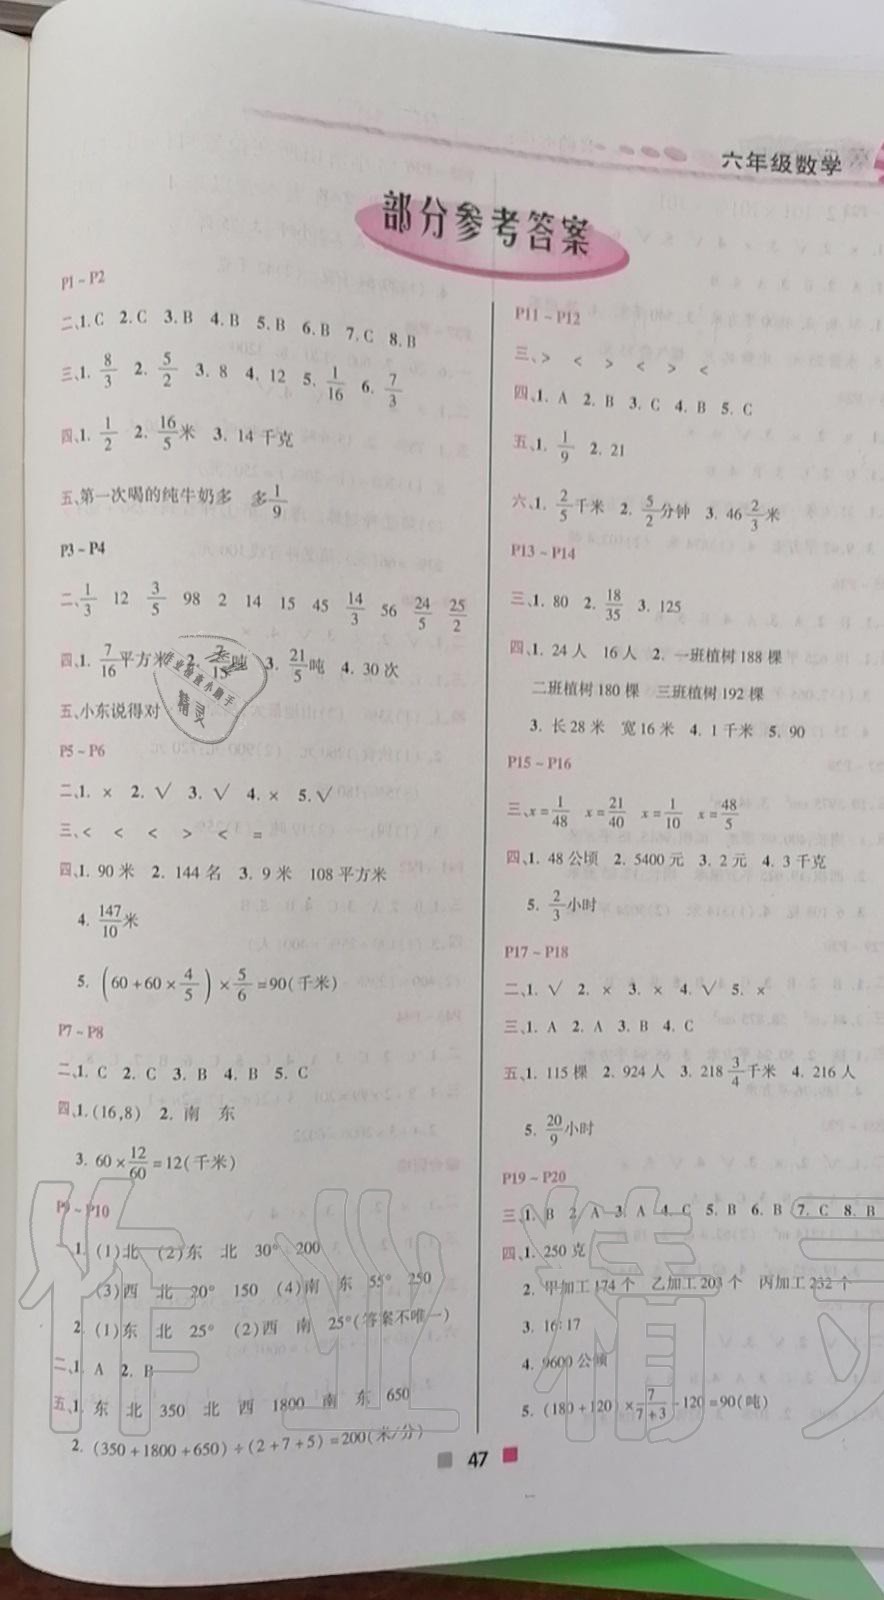 六年级数学
部分参考答案
P1~P2
二、1. C 2. C 3. B 4. B 5. B 6. B 7. C 8. B
三、1. 8/3 2. 5/2 3. 8 4. 12 5. 1/16 6. 7/3
四、1. 1/2 2. 16/5米 3. 14千克
五、第一次喝的纯牛奶多 多1/9
P3~P4
二、1/3 12 3/5 98 2 14 15 45 14/3 56 24/5 25/2
四、1. 7/16平方米 2. 2/15吨 3. 21/5吨 4. 30次
五、小东说得对
P5~P6
二、1. × 2. √ 3. √ 4. × 5. √
三、< < < > < =
四、1. 90米 2. 144名 3. 9米 108平方米
4. 147/10米
5. (60+60×4/5)×5/6=90(千米)
P7~P8
二、1. C 2. C 3. B 4. B 5. C
四、1. (16,8) 2. 南 东
3. 60×12/60=12(千米)
P9~P10
一、1. (1)北 (2)东 北 30° 200
(3)西 北 20° 150 (4)南 东 55° 250
2. (1)东 北 25° (2)西 南 25°(答案不唯一)
二、1. A 2. B
五、1. 东 北 350 北 西 1800 南 东 650
2. (350+1800+650)÷(2+7+5)=200(米/分)
P11~P12
三、> < > < > <
四、1. A 2. B 3. C 4. B 5. C
五、1. 1/9 2. 21
六、1. 2/5千米 2. 5/2分钟 3. 46 2/3米
P13~P14
三、1. 80 2. 18/35 3. 125
四、1. 24人 16人 2. 一班植树188棵
二班植树180棵 三班植树192棵
3. 长28米 宽16米 4. 1千米 5. 90
P15~P16
三、x=1/48 x=21/40 x=1/10 x=48/5
四、1. 48公顷 2. 5400元 3. 2元 4. 3千克
5. 2/3小时
P17~P18
二、1. √ 2. × 3. × 4. √ 5. ×
三、1. A 2. A 3. B 4. C
五、1. 115棵 2. 924人 3. 218 3/4千米 4. 216人
5. 20/9小时
P19~P20
三、1. B 2. A 3. A 4. C 5. B 6. B 7. C 8. B
四、1. 250克
2. 甲加工174个 乙加工203个 丙加工232个
3. 16:17
4. 9600公顷
5. (180+120)×7/(7+3)-120=90(吨)
47
作业精灵